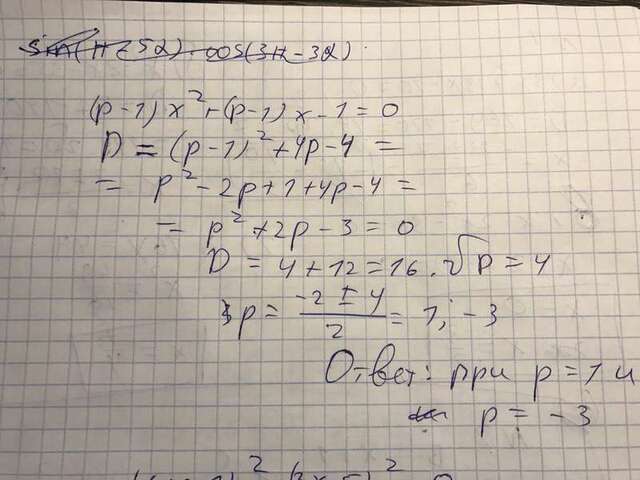 (p-1)x²+(p-1)x-1=0
D=(p-1)²+4p-4=
=p²-2p+1+4p-4=
=p²+2p-3=0
D=4+12=16, √D=4
p=(-2±4)/2=1;-3
Ответ: при p=1 и
p=-3